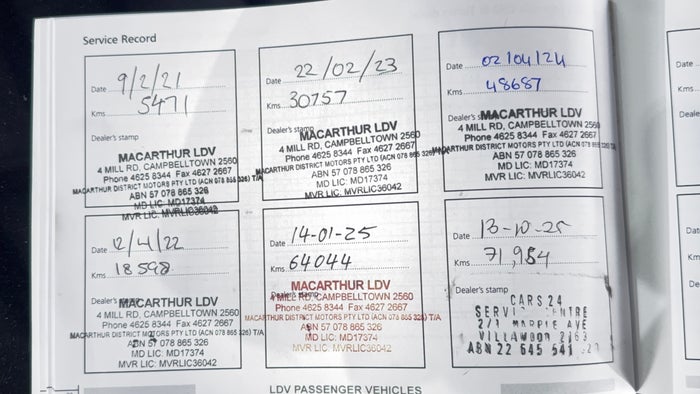 Service Record
Date 9/2/21
Kms. 5471
Dealer's stamp
MACARTHUR LDV
4 MILL RD, CAMPBELLTOWN 2560
Phone 4625 8344 Fax 4627 2667
MACARTHUR DISTRICT MOTORS PTY LTD (ACN 078 865 326) T/A
ABN 57 078 865 326
MD LIC: MD17374
MVR LIC: MVRLIC36042
Date 12/4/22
Kms. 18598
Dealer's
MACARTHUR LDV
4 MILL RD, CAMPBELLTOWN 2560
Phone 4625 8344 Fax 4627 2667
MACARTHUR DISTRICT MOTORS PTY LTD (ACN 078 865 326) T/A
ABN 57 078 865 326
MD LIC: MD17374
MVR LIC: MVRLIC36042
Date 22/02/23
Kms. 30757
Dealer's stamp
MACARTHUR LDV
4 MILL RD, CAMPBELLTOWN 2560
Phone 4625 8344 Fax 4627 2667
MACARTHUR DISTRICT MOTORS PTY LTD (ACN 078 865 326) T/A
ABN 57 078 865 326
MD LIC: MD17374
MVR LIC: MVRLIC36042
Date 14-01-25
Kms. 64044
Dealer's stamp
MACARTHUR LDV
4 MILL RD, CAMPBELLTOWN 2560
Phone 4625 8344 Fax 4627 2667
MACARTHUR DISTRICT MOTORS PTY LTD (ACN 078 865 326) T/A
ABN 57 078 865 326
MD LIC: MD17374
MVR LIC: MVRLIC36042
Date 02/04/24
Kms. 48687
Dealer's stamp
MACARTHUR LDV
4 MILL RD, CAMPBELLTOWN 2560
Phone 4625 8344 Fax 4627 2667
MACARTHUR DISTRICT MOTORS PTY LTD (ACN 078 865 326)
ABN 57 078 865 326
MD LIC: MD17374
MVR LIC: MVRLIC36042
Date 13-10-25
Kms. 71,954
Dealer's stamp
CARS24
2/1 MARPLE AVE
VILLAWOOD 2163
ABN 22 645 541
LDV PASSENGER VEHICLES
Date
Kms.
Deale
Dat
Km
De